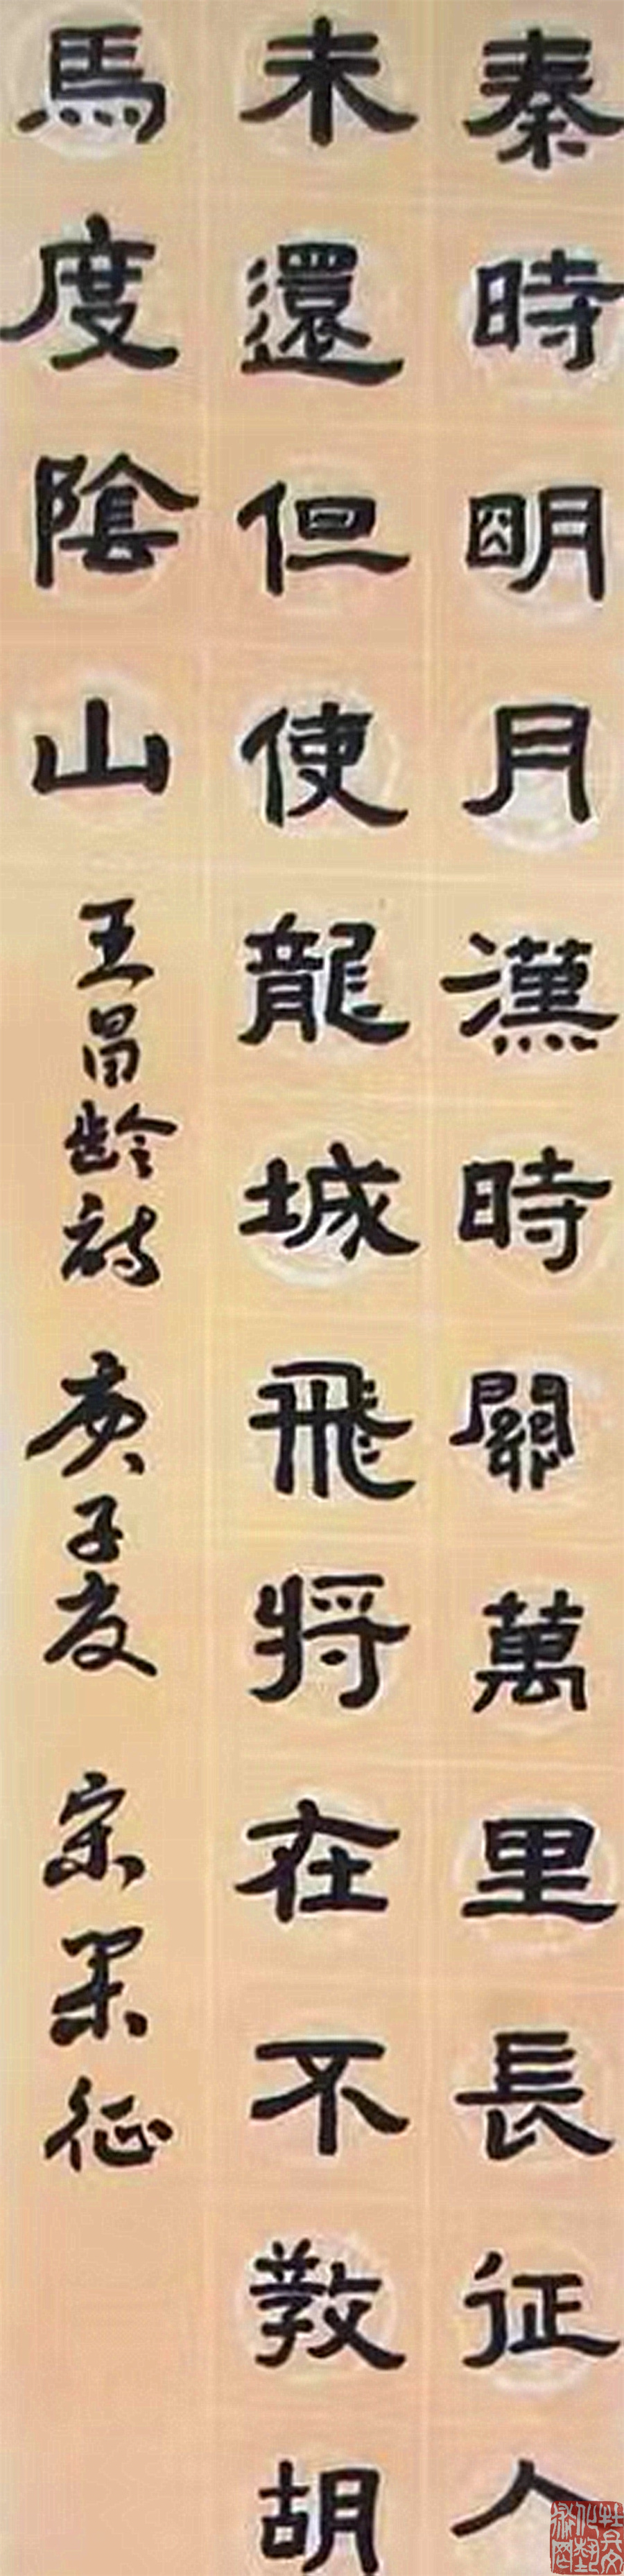 秦時明月漢時關萬里長征人
未還但使龍城飛將在不教胡
馬度陰山
王昌齡詩
庚子夏
宋果征